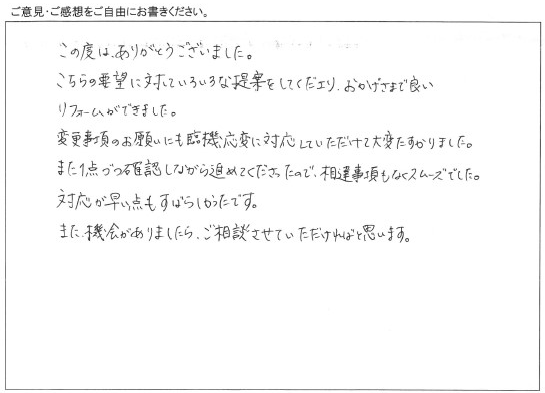 ご意見・ご感想をご自由にお書きください。
この度は、ありがとうございました。
こちらの要望に対していろいろな提案をしてくださり、おかげさまで良い
リフォームができました。
変更事項のお願いにも臨機応変に対応していただけて大変たすかりました。
また1点づつ確認しながら進めてくださったので、相違事項もなくスムーズでした。
対応が早い点もすばらしかったです。
また、機会がありましたら、ご相談させていただければと思います。